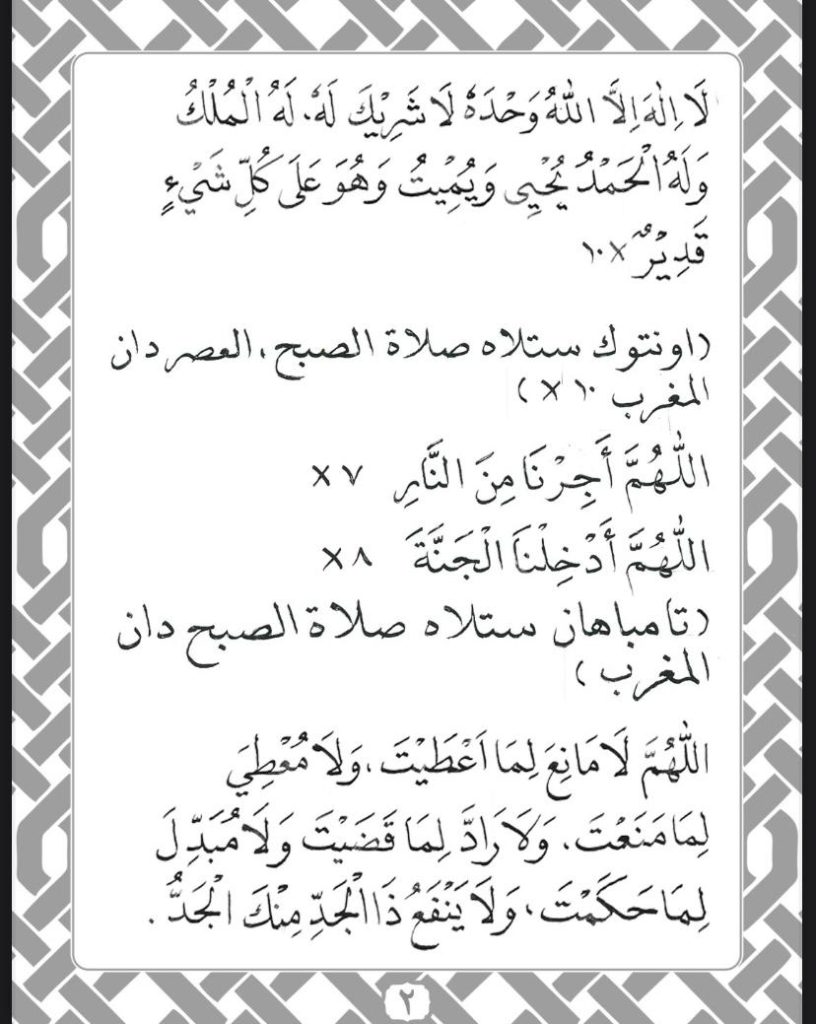 لَا اِلٰهَ اِلَّا اللهُ وَحْدَهُ لَا شَرِيْكَ لَهُ، لَهُ الْمُلْكُ
وَلَهُ الْحَمْدُ يُحْيِى وَيُمِيْتُ وَهُوَ عَلَى كُلِّ شَيْءٍ
قَدِيْرٌ ×١٠
(اونتوك ستله صلاة الصبح، العصر دان
المغرب ١٠ ×)
اللّٰهُمَّ أَجِرْنَا مِنَ النَّارِ ٧ ×
اللّٰهُمَّ أَدْخِلْنَا الْجَنَّةَ ٨ ×
(تامباهان ستلاه صلاة الصبح دان
المغرب)
اللّٰهُمَّ لَا مَانِعَ لِمَا اَعْطَيْتَ، وَلَا مُعْطِيَ
لِمَا مَنَعْتَ، وَلَا رَادَّ لِمَا قَضَيْتَ وَلَا مُبَدِّلَ
لِمَا حَكَمْتَ، وَلَا يَنْفَعُ ذَا الْجَدِّ مِنْكَ الْجَدُّ.
٢